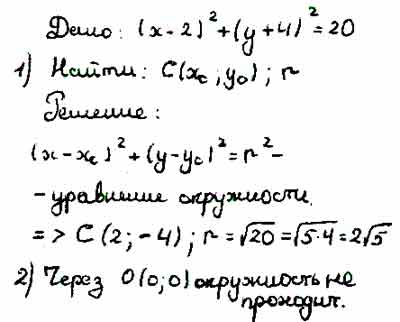 Дано: (x-2)²+(y+4)²=20
1) Найти: C(x_c; y_c); r
Решение:
(x-x_c)²+(y-y_c)²=r²-
-уравнение окружности.
=> C(2;-4); r=√20=√5·4=2√5
2) Через O(0;0) окружность не
проходит.